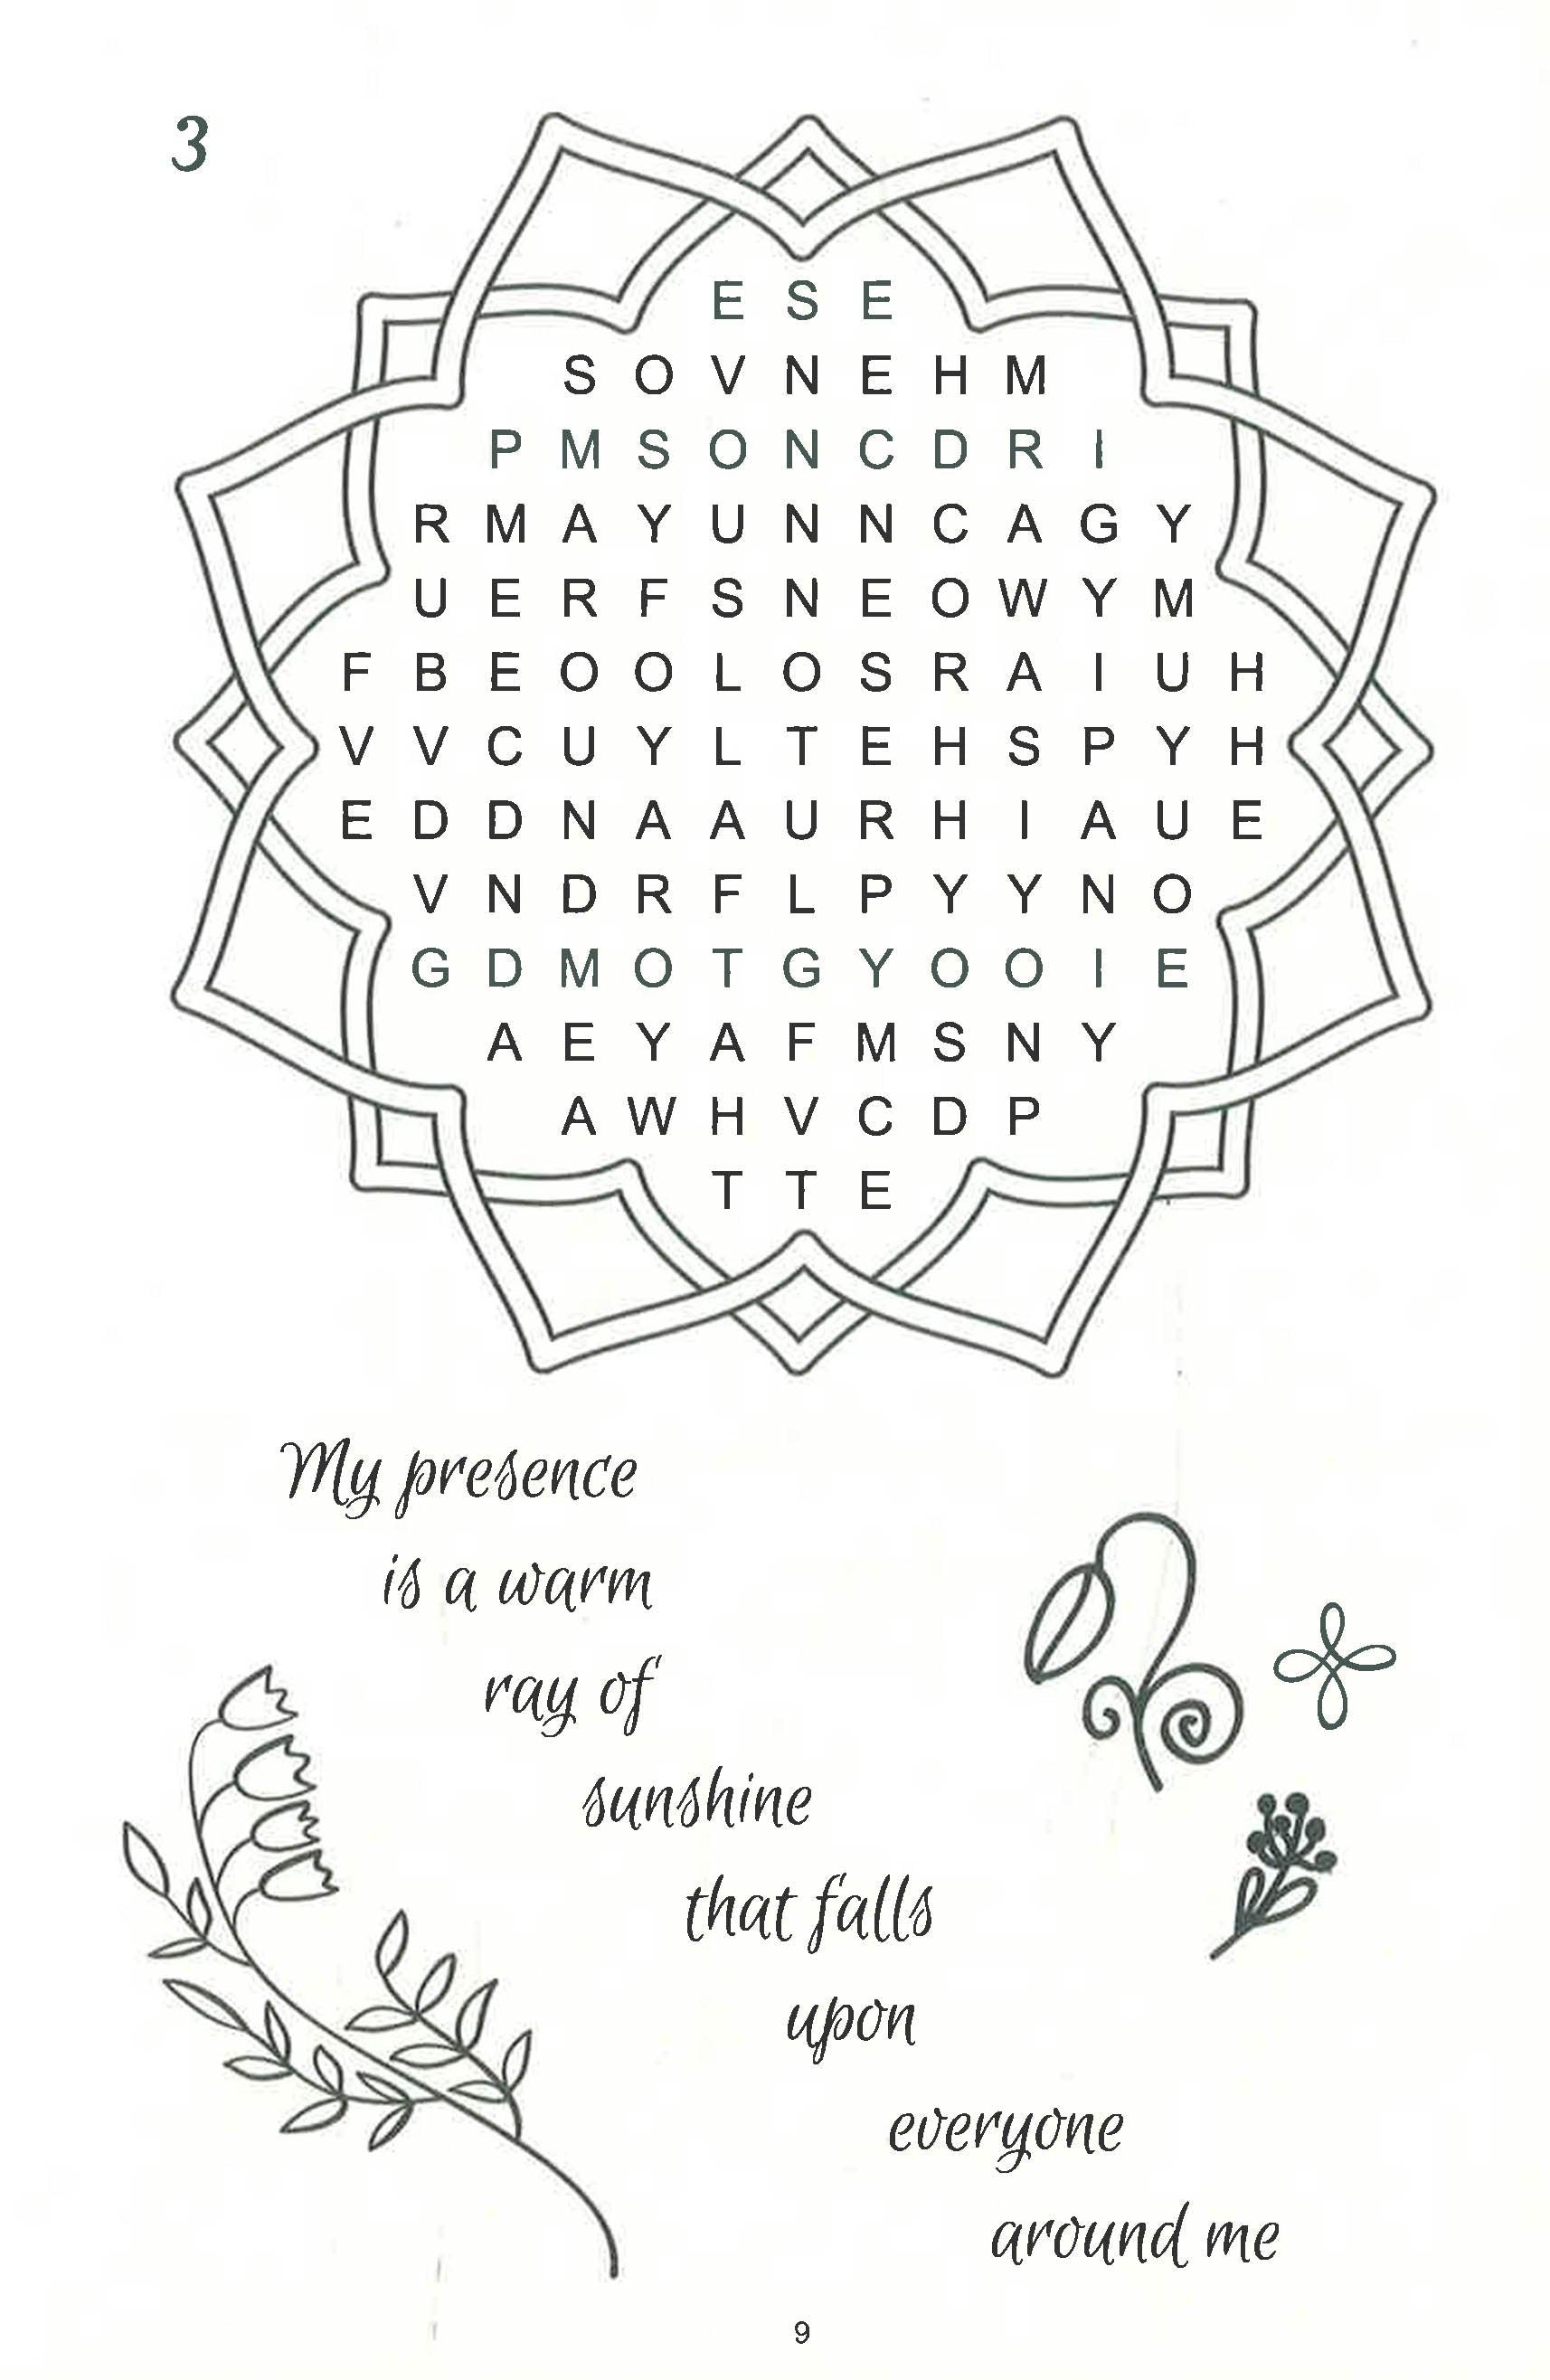 3
E S E
S O V N E H M
P M S O N C D R I
R M A Y U N N C A G Y
U E R F S N E O W Y M
F B E O O L O S R A I U H
V V C U Y L T E H S P Y H
E D D N A A U R H I A U E
V N D R F L P Y Y N O
G D M O T G Y O O I E
A E Y A F M S N Y
A W H V C D P
T T E
My presence
is a warm
ray of
sunshine
that falls
upon
everyone
around me
9